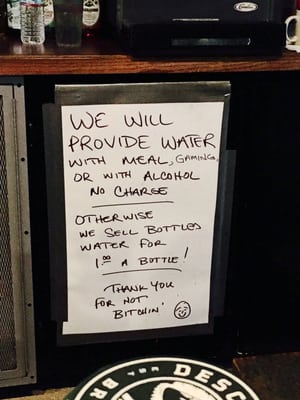 WE WILL
PROVIDE WATER
WITH MEAL, GAMING,
OR WITH ALCOHOL
NO CHARGE
OTHERWISE
WE SELL BOTTLED
WATER FOR
1.00 A BOTTLE!
THANK YOU
FOR NOT
BITCHIN'
DESC